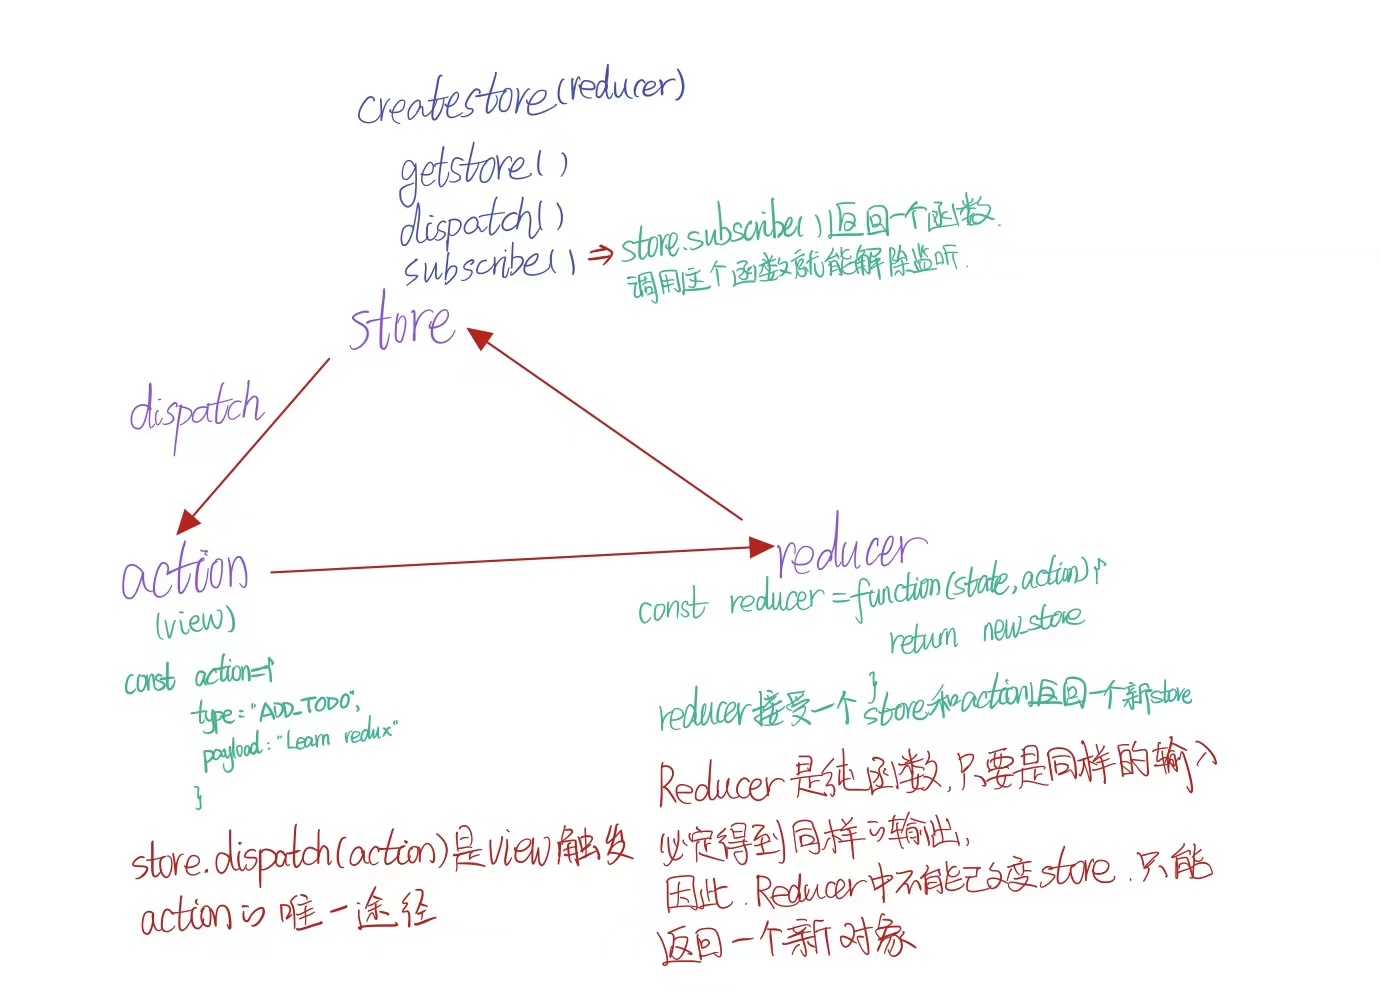 createstore(reducer)
getstore()
dispatch()
subscribe() ⇒ store.subscribe()返回一个函数.
调用这个函数就能解除监听.
store
dispatch
action
(view)
const action={
type:"ADD_TODO",
payload:"Learn redux"
}
store.dispatch(action)是view触发
action的唯一途径
reducer
const reducer=function(state,action){
return new_store
}
reducer接受一个store和action返回一个新store
Reducer是纯函数,只要是同样的输入
必定得到同样的输出,
因此.Reducer中不能改变store.只能
返回一个新对象